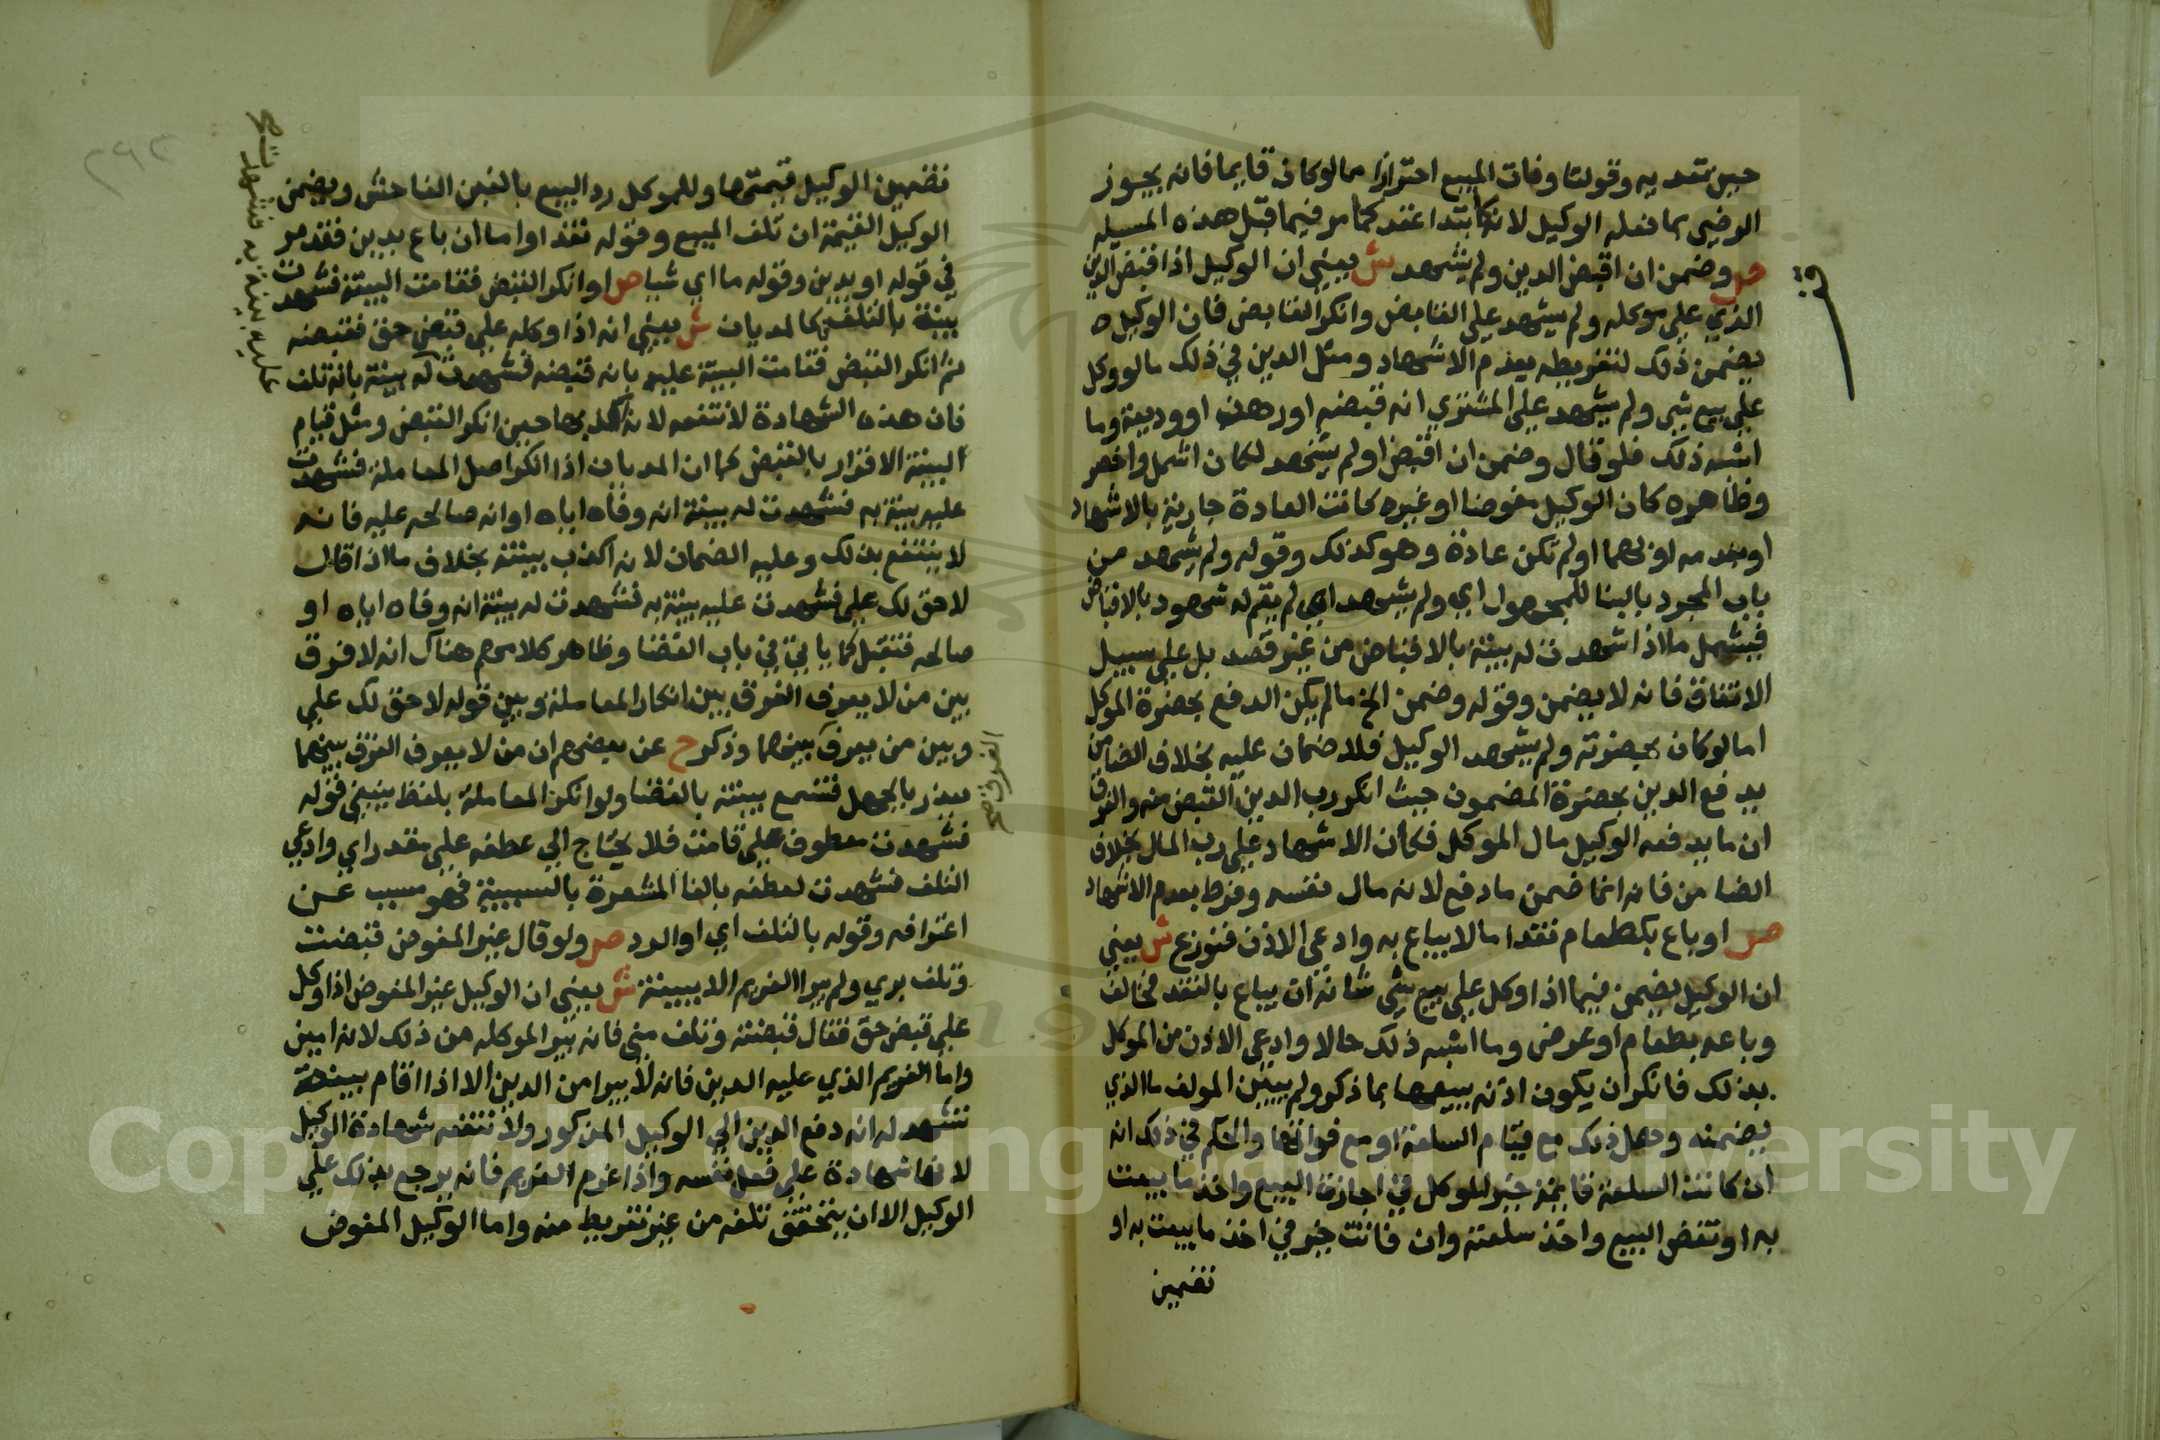 حين تعديه وقولنا وفات المبيع احترازا مما لو كان قايما فانه يجوز
الرضى بما فعله الوكيل لانه كابتدا عقد كما مر فيما قبل هذه المسيله
ص وضمن ان اقبض الدين ولم يشهد ش يعني ان الوكيل اذا اقبض الدين
الذي على موكله ولم يشهد على القابض وانكر القابض فان الوكيل ه
يضمن ذلك لتفريطه بعدم الاشهاد ومثل الدين في ذلك ما لو وكل
على بيع شي ولم يشهد على المشتري انه قبضه او رهن او وديعة وما
اشبه ذلك فلو قال وضمن ان اقبض ولم يشهد لكان اشمل واخصر
وظاهره كان الوكيل مفوضا او غيره كانت العادة جارية بالاشهاد
او بعدمه او بهما او لم تكن عادة وهو كذلك وقوله ولم يشهد من
باب المجرد بالبنا للمجهول اي ولم يشهد اي لم يقم له شهود بالاقباض
فيشمل ما اذا شهدت له بينة بالاقباض من غير قصد بل على سبيل
الاتفاق فانه لا يضمن وقوله وضمن الخ ما لم يكن الدفع بحضرة الموكل
اما لو كان بحضرته ولم يشهد الوكيل فلا ضمان عليه بخلاف الضامن
يدفع الدين بحضرة المضمون حيث انكر رب الدين القبض منه والفرق
ان ما يدفعه الوكيل مال الموكل فكان الاشهاد على رب المال بخلاف
الضامن فانه انما ضمن ما دفع لانه مال نفسه وفرط بعدم الاشهاد
ص او باع بكطعام نقدا ما لا يباع به وادعى الاذن فنوزع ش يعني
ان الوكيل يضمن فيما اذا وكل على بيع شي شانه ان يباع بالنقد فخالف
وباعه بطعام او عرض وما اشبه ذلك حالا وادعى الاذن من الموكل
بذلك فانكر ان يكون اذنه ببيعها بما ذكر ولم يبين المولف ما الذي
يضمنه وهل ذلك مع قيام السلعة او مع فواتها والحكم في ذلك انه
ان كانت السلعة قايمة خير الموكل في اجازة البيع واخذ ما بيعت
به او نقض البيع واخذ سلعته وان فاتت خير في اخذ ما بيعت به او
تضمين
تضمين الوكيل قيمتها وللموكل رد البيع بالغبن الفاحش ويضمن
الوكيل القيمة ان تلف المبيع وقوله نقدا واما ان باع بدين فقد مر
في قوله او بدين وقوله ما اي شيا ص او انكر القبض فقامت البينة فشهدت
بينة بالتلف كالمديان ش يعني انه اذا وكله على قبض حق فقبضه
ثم انكر القبض فقامت البينة عليه بانه قبضه فشهدت له بينة بانه تلف
فان هذه الشهادة لا تنفعه لانه اكذبها حين انكر القبض ومثل قيام
البينة الاقرار بالقبض كما ان المديان اذا انكر اصل المعاملة فشهدت
عليه بينة به فشهدت له بينة انه وفاه اياه او انه صالحه عليه فانه
لا ينتفع بذلك وعليه الضمان لانه اكذب بينته بخلاف ما اذا قال
لا حق لك علي فشهدت عليه بينة به فشهدت له بينة انه وفاه اياه او
صالحه فتقبل كما ياتي في باب القضا وظاهر كلامهم هناك انه لا فرق
بين من لا يعرف الفرق بين انكار المعاملة وبين قوله لا حق لك علي
وبين من يعرف بينهما وذكر ح عن بعضهم ان من لا يعرف الفرق بينهما
يعذر بالجهل فتسمع بينته بالقضا ولو انكر المعاملة بلفظ ينبغي قوله
فشهدت معطوف على قامت فلا يحتاج الى عطفه على مقدر اي وادعى
التلف فشهدت لعطفه بالفا المشعرة بالسببية فهو مسبب عن
اعترافه وقوله بالتلف اي او الرد ص ولو قال غير المفوض قبضت
وتلف بري ولم يبرا الغريم الا ببينة ش يعني ان الوكيل غير المفوض اذا وكل
على قبض حق فقال قبضته وتلف مني فانه يبرا لموكله من ذلك لانه امين
واما الغريم الذي عليه الدين فانه لا يبرا من الدين الا اذا اقام بينة
تشهد له انه دفع الدين الى الوكيل المذكور ولا تنفعه شهادة الوكيل
لانها شهادة على فعل نفسه واذا غرم الغريم فانه يرجع بذلك على
الوكيل الا ان يتحقق تلفه من غير تفريط منه واما الوكيل المفوض
عليه بينة به فشهدت
Copyright © King Saud University